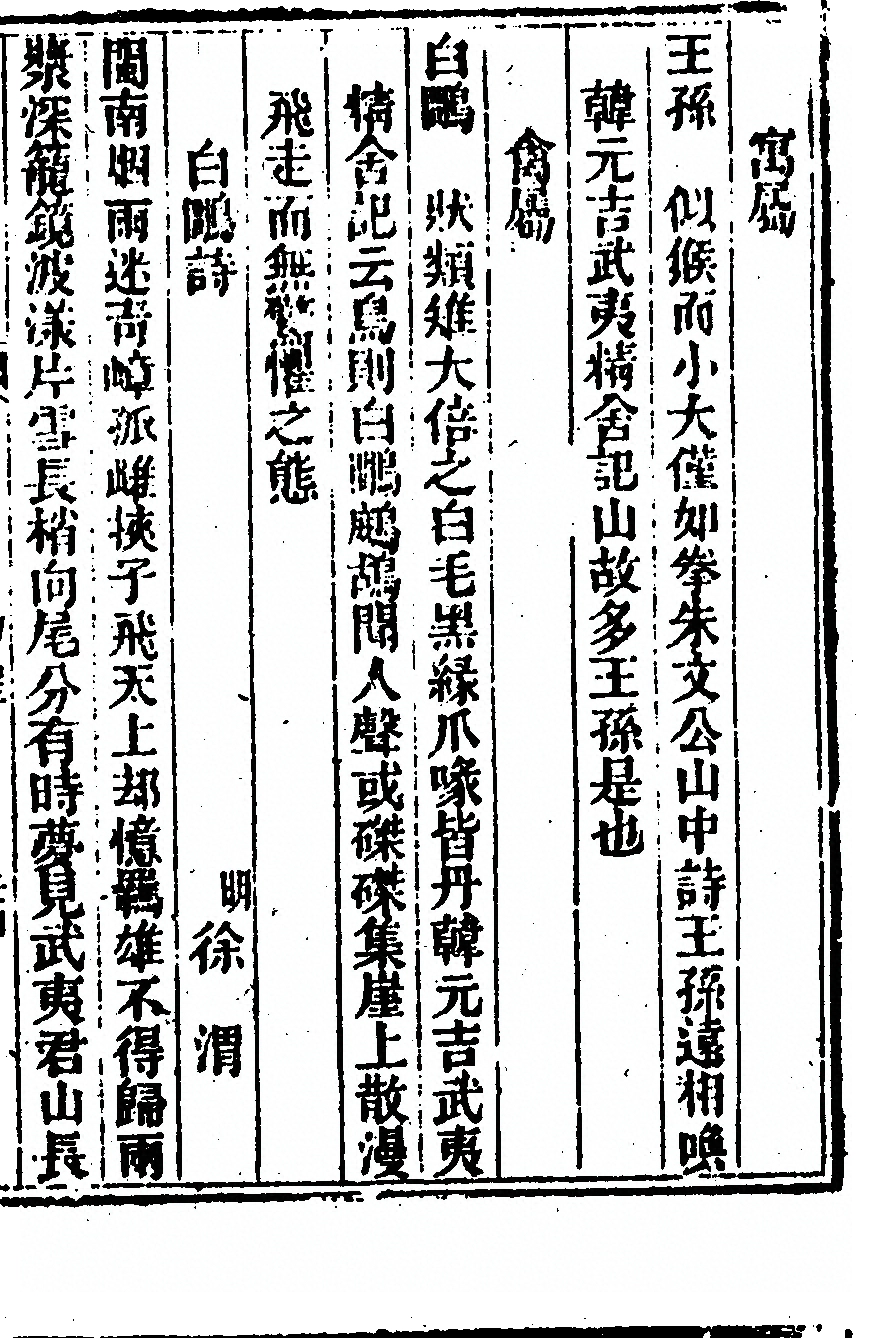 寓屬
王孫　似猴而小大僅如拳朱文公山中詩王孫遠相喚
韓元吉武夷精舍記山故多王孫是也
禽屬
白鷴　狀類雉大倍之白毛黑緣爪喙皆丹韓元吉武夷
精舍記云鳥則白鷴鷓鴣聞人聲或磔磔集崖上散漫
飛走而無驚懼之態
白鷴詩　明徐渭
閩南烟雨迷奇嶂孤雌挾子飛天上却憶羈雄不得歸兩
槳深籠鏡波漾片雪長梢向尾分有時夢見武夷君山長